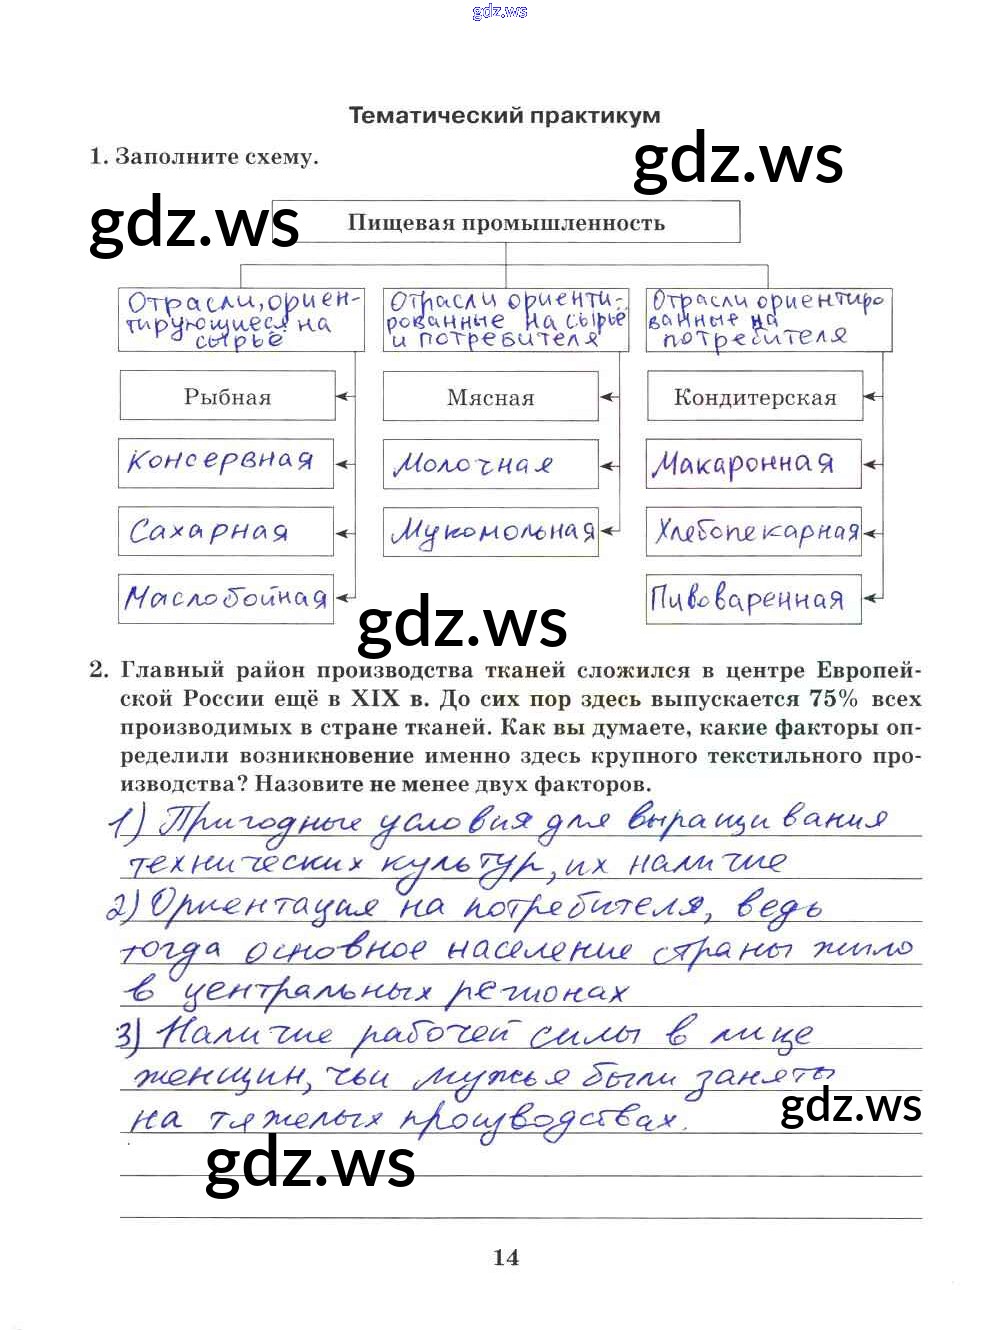 gdz.ws
Тематический практикум
1. Заполните схему.
gdz.ws
gdz.ws
Пищевая промышленность
Отрасли, ориен-
тирующиеся на
сырьё
Отрасли ориенти-
рованные на сырьё
и потребителя
Отрасли ориентиро
ванные на
потребителя
Рыбная
Мясная
Кондитерская
Консервная
Молочная
Макаронная
Сахарная
Мукомольная
Хлебопекарная
Маслобойная
Пивоваренная
gdz.ws
2. Главный район производства тканей сложился в центре Европей-
ской России ещё в XIX в. До сих пор здесь выпускается 75% всех
производимых в стране тканей. Как вы думаете, какие факторы оп-
ределили возникновение именно здесь крупного текстильного про-
изводства? Назовите не менее двух факторов.
1) Пригодные условия для выращивания
технических культур, их наличие
2) Ориентация на потребителя, ведь
тогда основное население страны жило
в центральных регионах
3) Наличие рабочей силы в лице
женщин, чьи мужья были заняты
на тяжелых производствах.
gdz.ws
gdz.ws
14